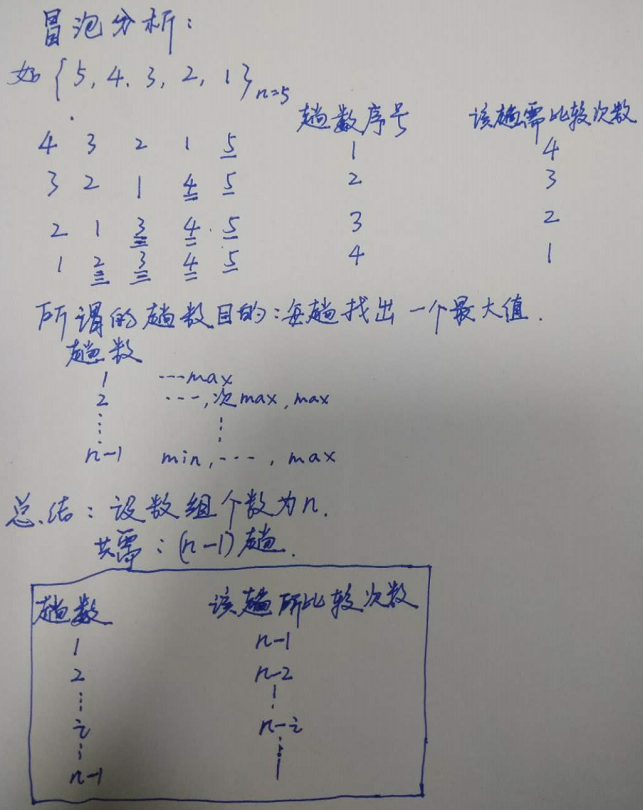 冒泡分析：
如{5, 4, 3, 2, 1}n=5
趟数序号 该趟需比较次数
4 3 2 1 5 1 4
3 2 1 4 5 2 3
2 1 3 4 5 3 2
1 2 3 4 5 4 1
所谓的趟数目的：每趟找出一个最大值.
趟数
1 ---max
2 ---,次max, max
⋮ ⋮
n-1 min, ---, max
总结：设数组个数为n.
共需：(n-1)趟.
趟数 该趟所比较次数
1 n-1
2 n-2
⋮ ⋮
i n-i
⋮ ⋮
n-1 1